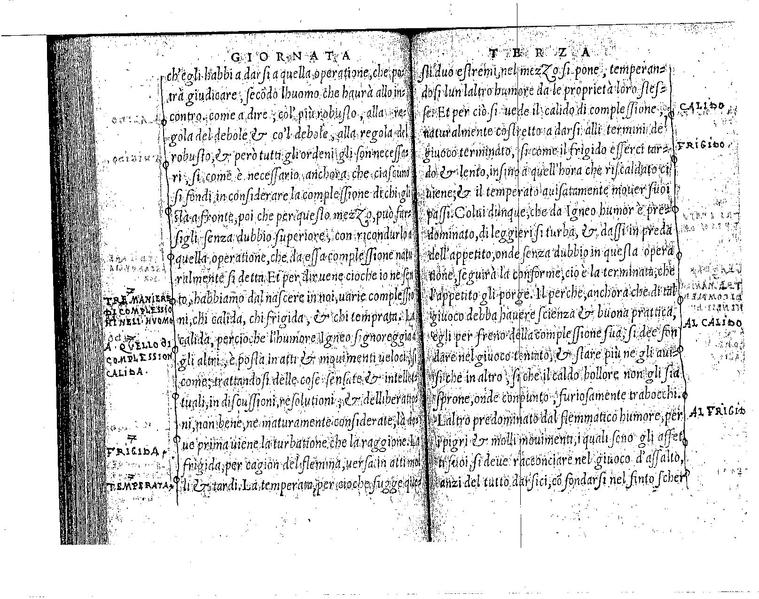 GIORNATA
ch'egli habbi a darsi a quella operatione, che po
trà giudicare, secõdo lhuomo che haurà allo in
contro. come a dire, col' piu robusto, alla re=
gola del debole & co'l debole, alla regola del
robusto, & però tutti gli ordeni gli son necessa
ri, si come è necessario anchora, che ciascuno
si fondi, in considerare la complessione di chi gli
sta a fronte, poi che per questo mezzo, può far=
sigli senza dubbio superiore, con ricondurlo a
quella operatione, che da essa complessione natu
ralmente si detta. Et per diruene cioche io ne sen
to, habbiamo dal nascere in noi, uarie complessio
ni, chi calida, chi frigida, & chi temprata. La
calida, percioche l'humore Igneo signoreggia
gli altri, è posta in atti & mouimenti ueloci, si
come, trattandosi delle cose sensate & intellet
tuali, in discussioni, resolutioni, & delliberatio
ni, non bene, ne maturamente considerate, là do
ue prima uiene la turbatione, che la raggione. La
frigida, per cagion del flemma, uersa in atti mol
li & tardi. La temperata, per cioche fugge que
TRE MANIERE
DI COMPLESSIO
NI NELL' HUOMO
A. QUELLO DI
COMPLESSION
CALIDA.
FRIGIDA,
TEMPERATA,
TERZA
sti duo estremi, nel mezzo si pone, temperan=
dosi lun laltro humore da le proprietà loro stes=
se. Et per ciò si uede il calido di complessione,
naturalmente costretto a darsi alli termini de
giuoco terminato, si come il frigido esserci tar=
do & lento, insino a quell'hora che riscaldato ci
uiene; & il temperato auisatamente mouer suoi
passi. Colui dunque, che da Igneo humor è pre=
dominato, di leggieri si turba, & dassi in preda
dell'appetito, onde senza dubbio in questa opera
tione, seguirà la conforme, cio è la terminata, che
l'appetito gli porge. Il perche, anchora che di tal
giuoco debba hauere scienza & buona prattica,
egli per freno della complessione sua, si dee fon
dare nel giuoco tentato, & stare più ne gli aui=
si che in altro, si che il caldo bollore non gli sia
sprone, onde conpunto, furiosamente trabocchi.
L'altro predominato dal flemmatico humore, per
i pigri & molli mouimenti, i quali sono gli affet
ti suoi, si deue racconciare nel giuoco d'assalto,
anzi del tutto darsici, cõ fondarsi nel finto scher
CALIDO
FRIGIDO.
AL CALIDO
AL FRIGIDO